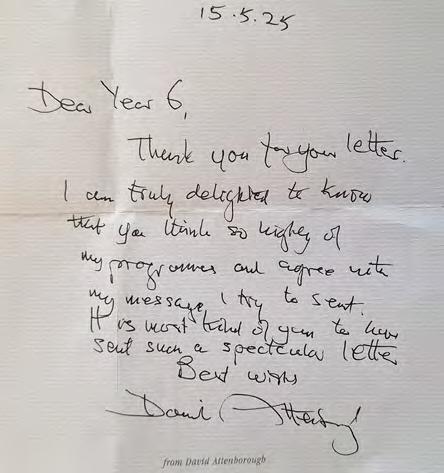 15.5.25
Dear Year 6,
Thank you for your letter.
I am truly delighted to know
that you think so highly of
my programmes and agree with
my message I try to sent.
It is most kind of you to have
sent such a spectacular letter
Best wishes
David Attenborough
from David Attenborough